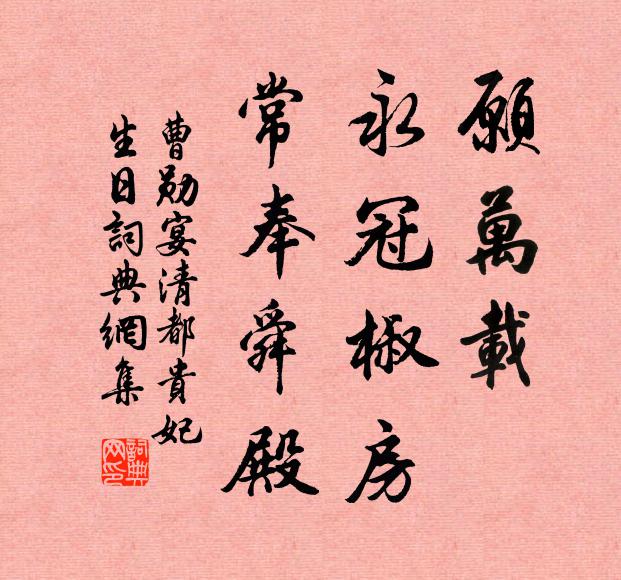 願萬載
永冠椒房
常奉舜殿
曹勛宴清都貴妃
生日詞典網集
詞典网印